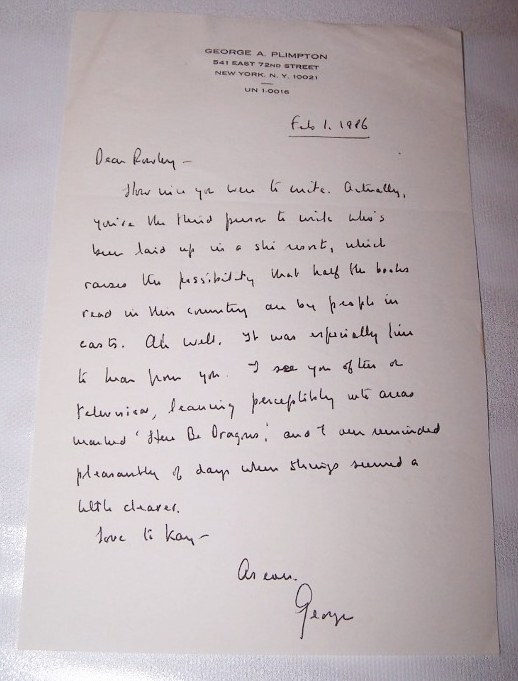 GEORGE A. PLIMPTON
541 EAST 72ND STREET
NEW YORK, N. Y. 10021
UN 1-0016
Feb 1, 1986
Dear Rowley —
How nice you were to write. Actually,
you're the third person to write who's
been laid up in a ski resort, which
raises the possibility that half the books
read in this country are by people in
casts. Ah well. It was especially fine
to hear from you. I see you often on
television, leaning perceptibly into areas
marked 'Here Be Dragons', and I am reminded
pleasantly of days when things seemed a
little clearer.
Love to Kay —
As ever,
George